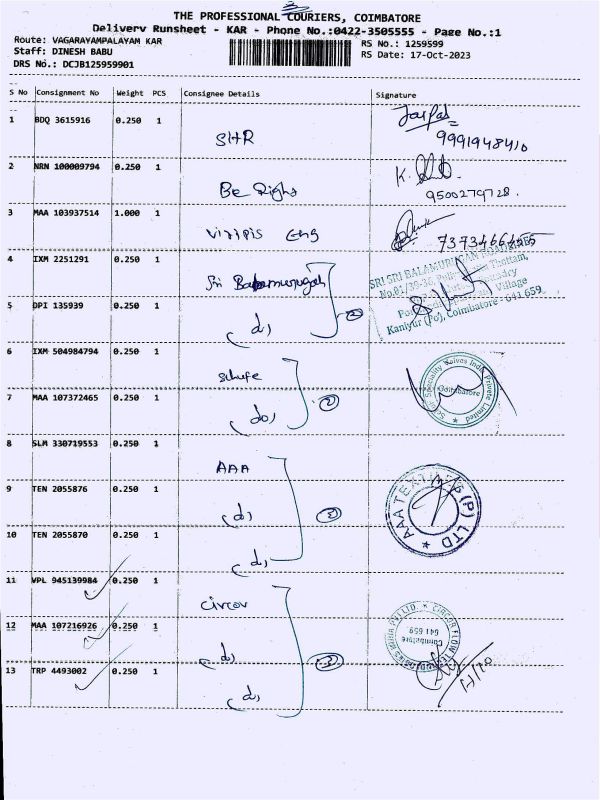 3
THE PROFESSIONAL COURIERS, COIMBATORE
Delivery Runsheet - KAR - Phone No.:0422-3505555 - Page No.:1
Route: VAGARAYAMPALAYAM KAR
RS No.: 1259599
Staff: DINESH BABU
RS Date: 17-Oct-2023
DRS No.: DCJB125959901
S No Consignment No Weight PCS Consignee Details Signature
1 BDQ 3615916 0.250 1 SHR
9991948410
2 NRN 100009794 0.250 1 Be Right
K.
9500279728.
3 MAA 103937514 1.000 1 Eng
7373466455
4 IXM 2251291 0.250 1 Sri Balamurugan
SRI SRI BALAMURUGAN
No.81/30-36, Thottam,
Village
Kaniyur (Po), Coimbatore - 641 659
5 DPI 135939 0.250 1 (do) 2
6 IXM 504984794 0.250 1
Speciality Valves India Private Limited
Coimbatore
7 MAA 107372465 0.250 1 (do) 2
8 SLM 330719553 0.250 1 AAA
9 TEN 2055876 0.250 1 (do) 3
AAA TEXTILES (P) LTD
10 TEN 2055870 0.250 1 (do)
11 VPL 945139984 0.250 1 Circor
CIRCOR FLOW
INDIA PVT LTD.
Coimbatore
641 659
12 MAA 107216926 0.250 1 (do) 3
13 TRP 4493002 0.250 1 (do)